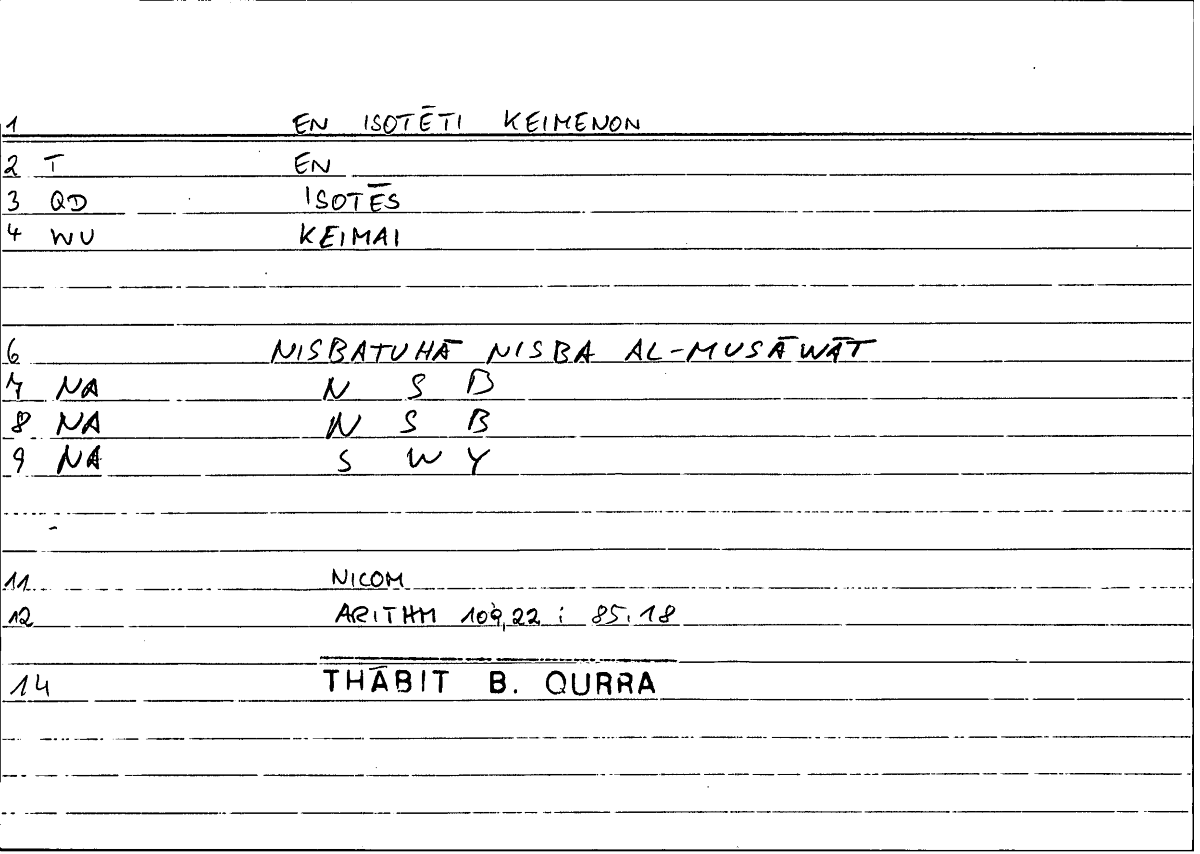 1 EN ISOTĒTI KEIMENON
2 T EN
3 QD ISOTĒS
4 WU KEIMAI
6 NISBATUHĀ NISBA AL-MUSĀWĀT
7 NA N S B
8 NA N S B
9 NA S W Y
11 NICOM
12 ARITHM 109,22 : 85.18
14 THĀBIT B. QURRA